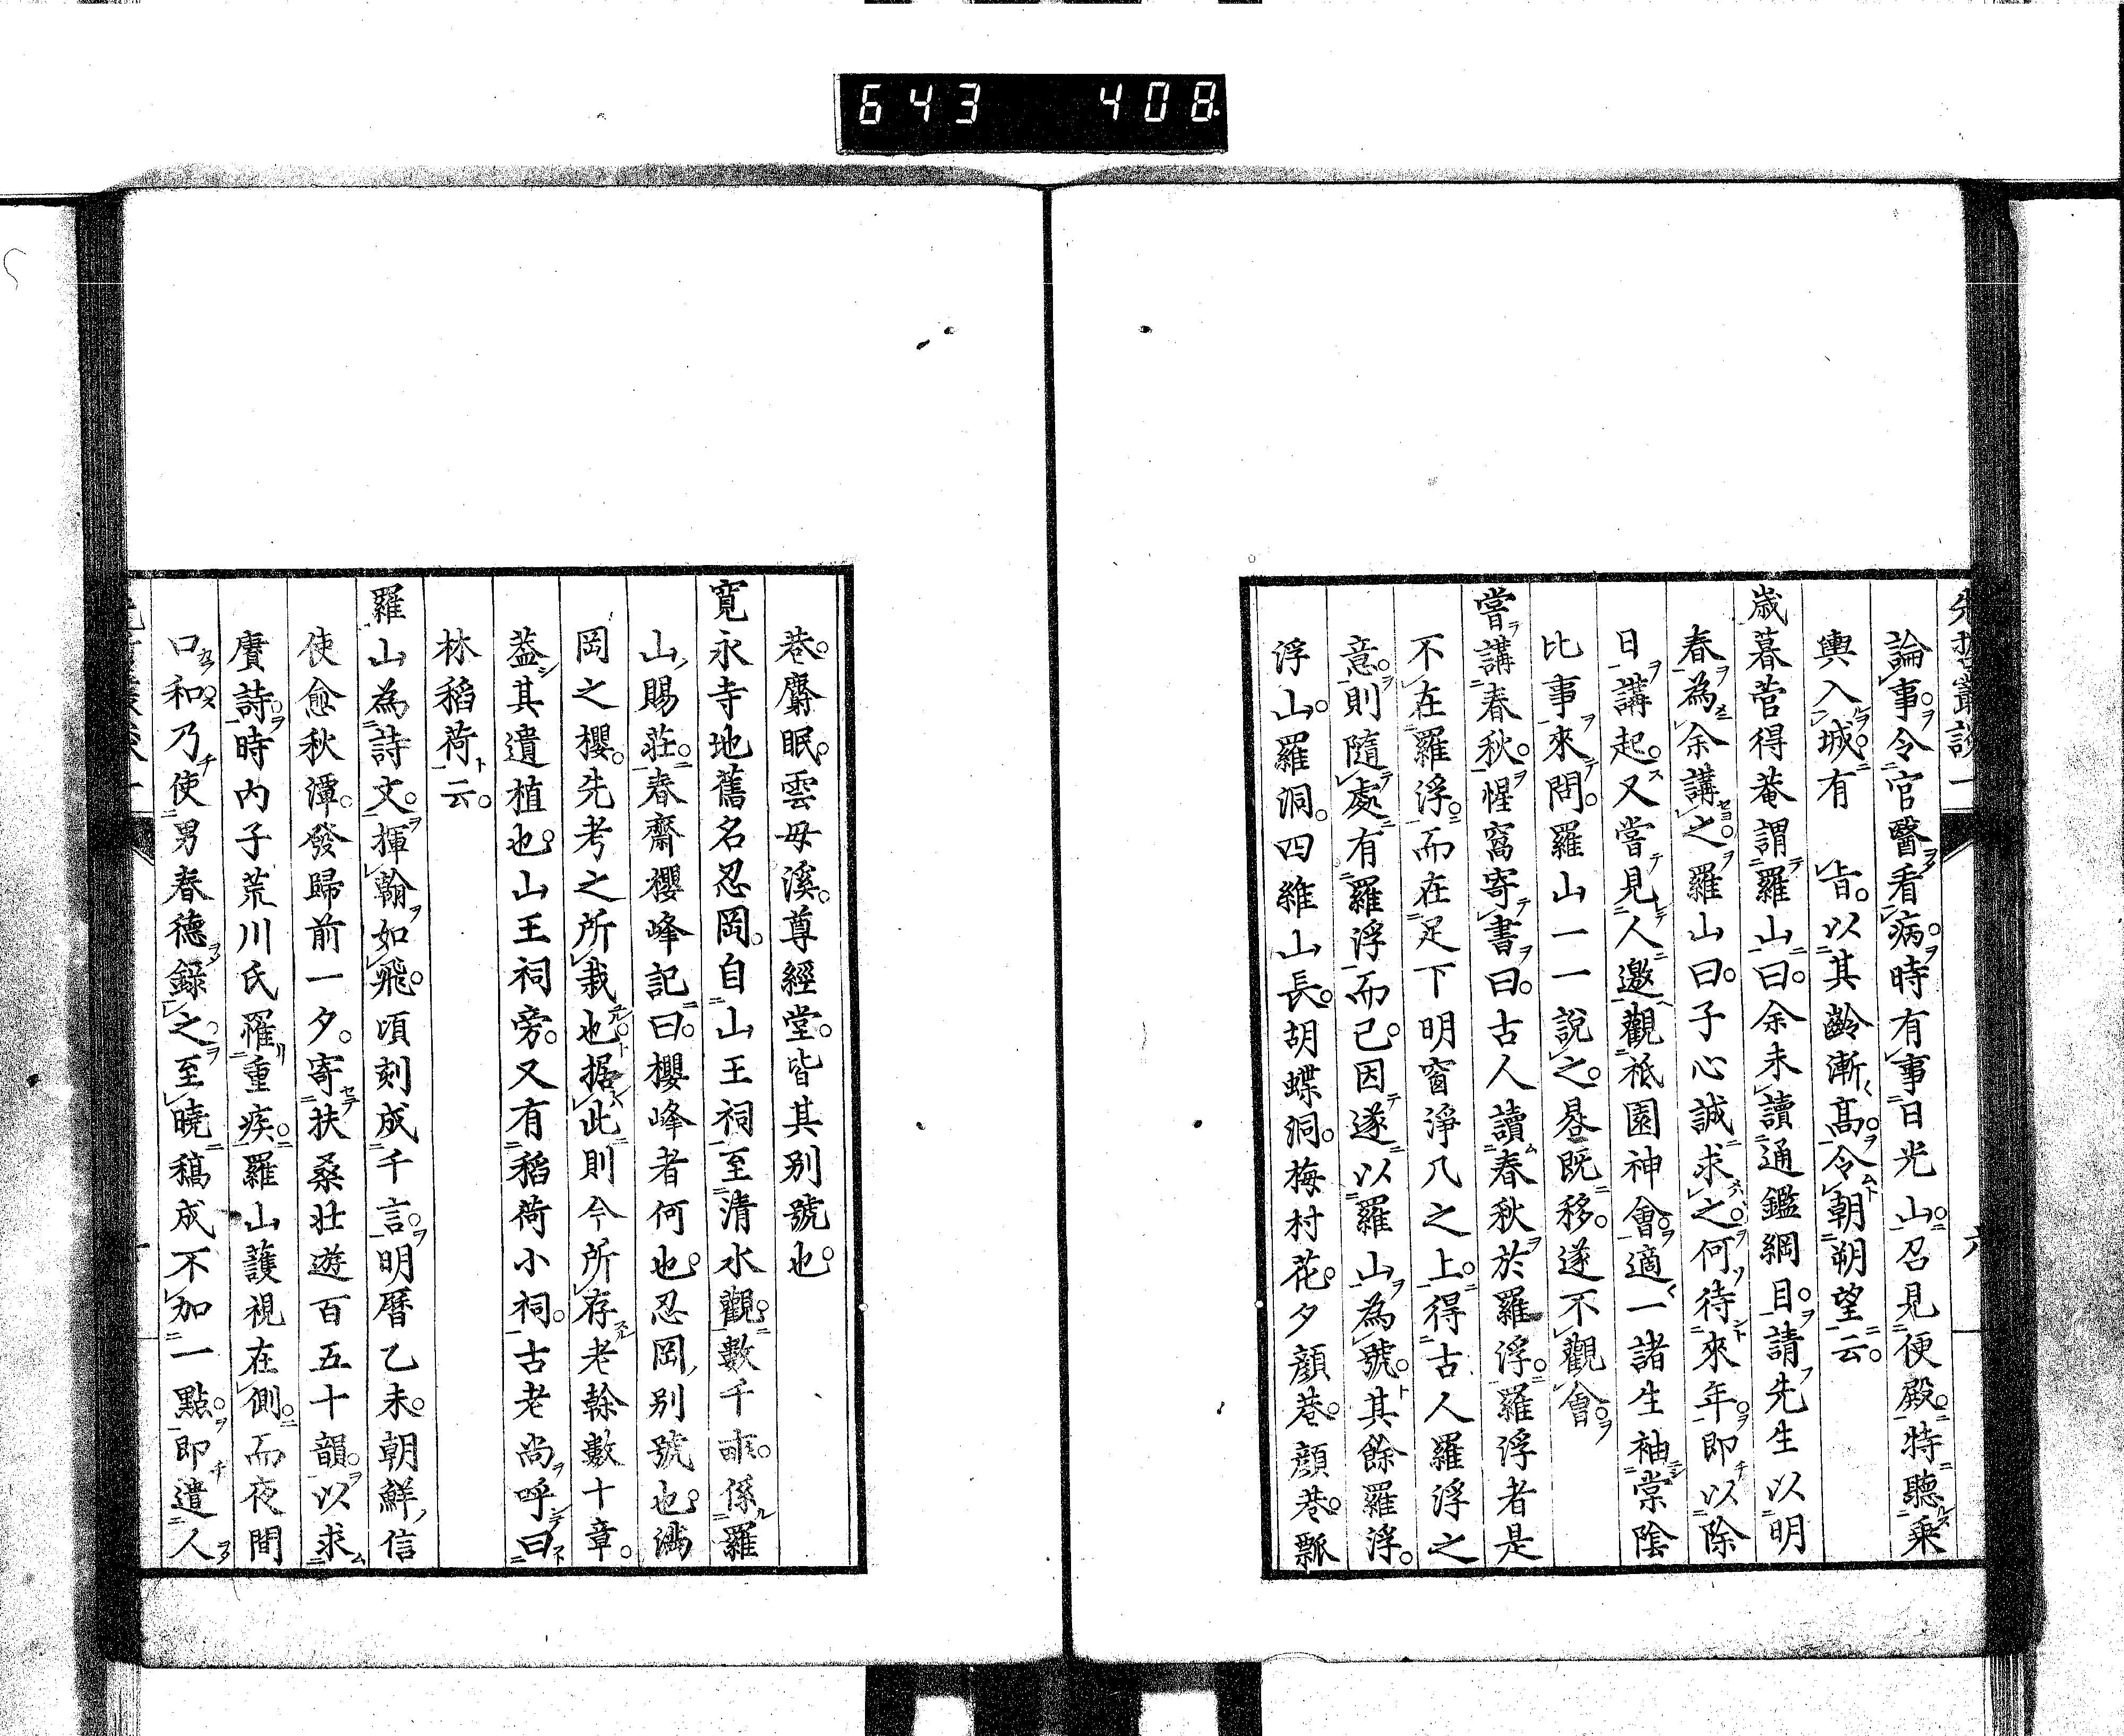 643 408
論事。令官醫看病。時有事日光山。召見便殿。特聽乘
輿入城。有 旨。以其齡漸高。令朝朔望云。
歳暮菅得菴謂羅山曰。余未讀通鑑綱目。請先生以明
春為余講之。羅山曰。子心誠求之。何待來年。即以除
日講起。又嘗見人邀觀祗園神會。適一諸生袖棠陰
比事來問。羅山一一說之。晷既移。遂不觀會。
嘗講春秋。惺窩寄書曰。古人讀春秋於羅浮。羅浮者是
不在羅浮。而在足下明窗淨几之上。得古人羅浮之
意。則隨處有羅浮而已。因遂以羅山為號。其餘羅浮。
浮山。羅洞。四維山長。胡蝶洞。梅村花。夕顔巷。顔巷。瓢
巷。麝眠。雲母溪。尊經堂。皆其別號也。
寛永寺地舊名忍岡。自山王祠至清水觀。數千畝。係羅
山賜莊。春齋櫻峰記曰。櫻峰者何也。忍岡別號也。滿
岡之櫻。先考之所栽也。据此則今所存老幹數十章。
葢其遺植也。山王祠旁。又有稻荷小祠。古老尚呼曰
林稻荷云。
羅山為詩文。揮翰如飛。頃刻成千言。明曆乙未。朝鮮信
使愈秋潭。發歸前一夕。寄扶桑壯遊百五十韻。以求
賡詩。時内子荒川氏罹重疾。羅山護視在側。而夜間
口和。乃使男春德錄之。至曉稿成不加一點。即遣人